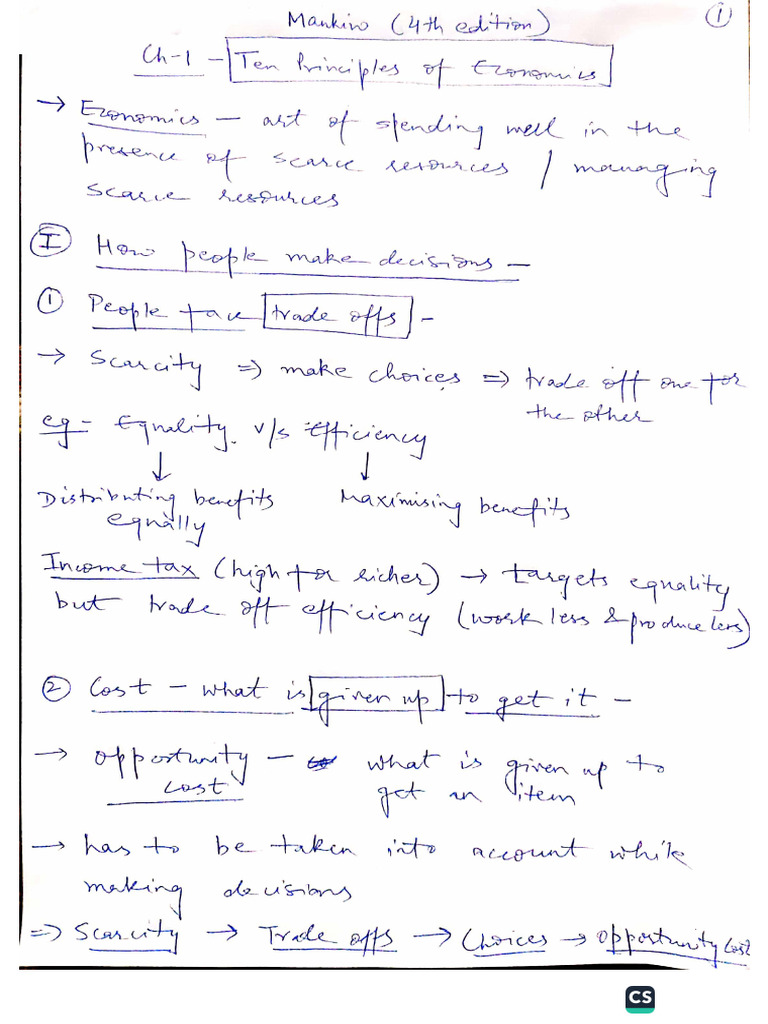 Mankiw (4th edition)
①
Ch-1 - Ten Principles of Economics
→ Economics - art of spending well in the
presence of scarce resources / managing
scarce resources
Ⓘ How people make decisions -
① People face trade offs -
→ Scarcity ⇒ make choices ⇒ trade off one for
the other
eg - Equality v/s Efficiency
↓ ↓
Distributing benefits Maximising benefits
equally
Income tax (high for richer) → targets equality
but trade off efficiency (work less & produce less)
② Cost - what is given up to get it -
→ opportunity - what is given up to
cost get an item
→ has to be taken into account while
making decisions
⇒ Scarcity → Trade offs → Choices → opportunity cost
CS